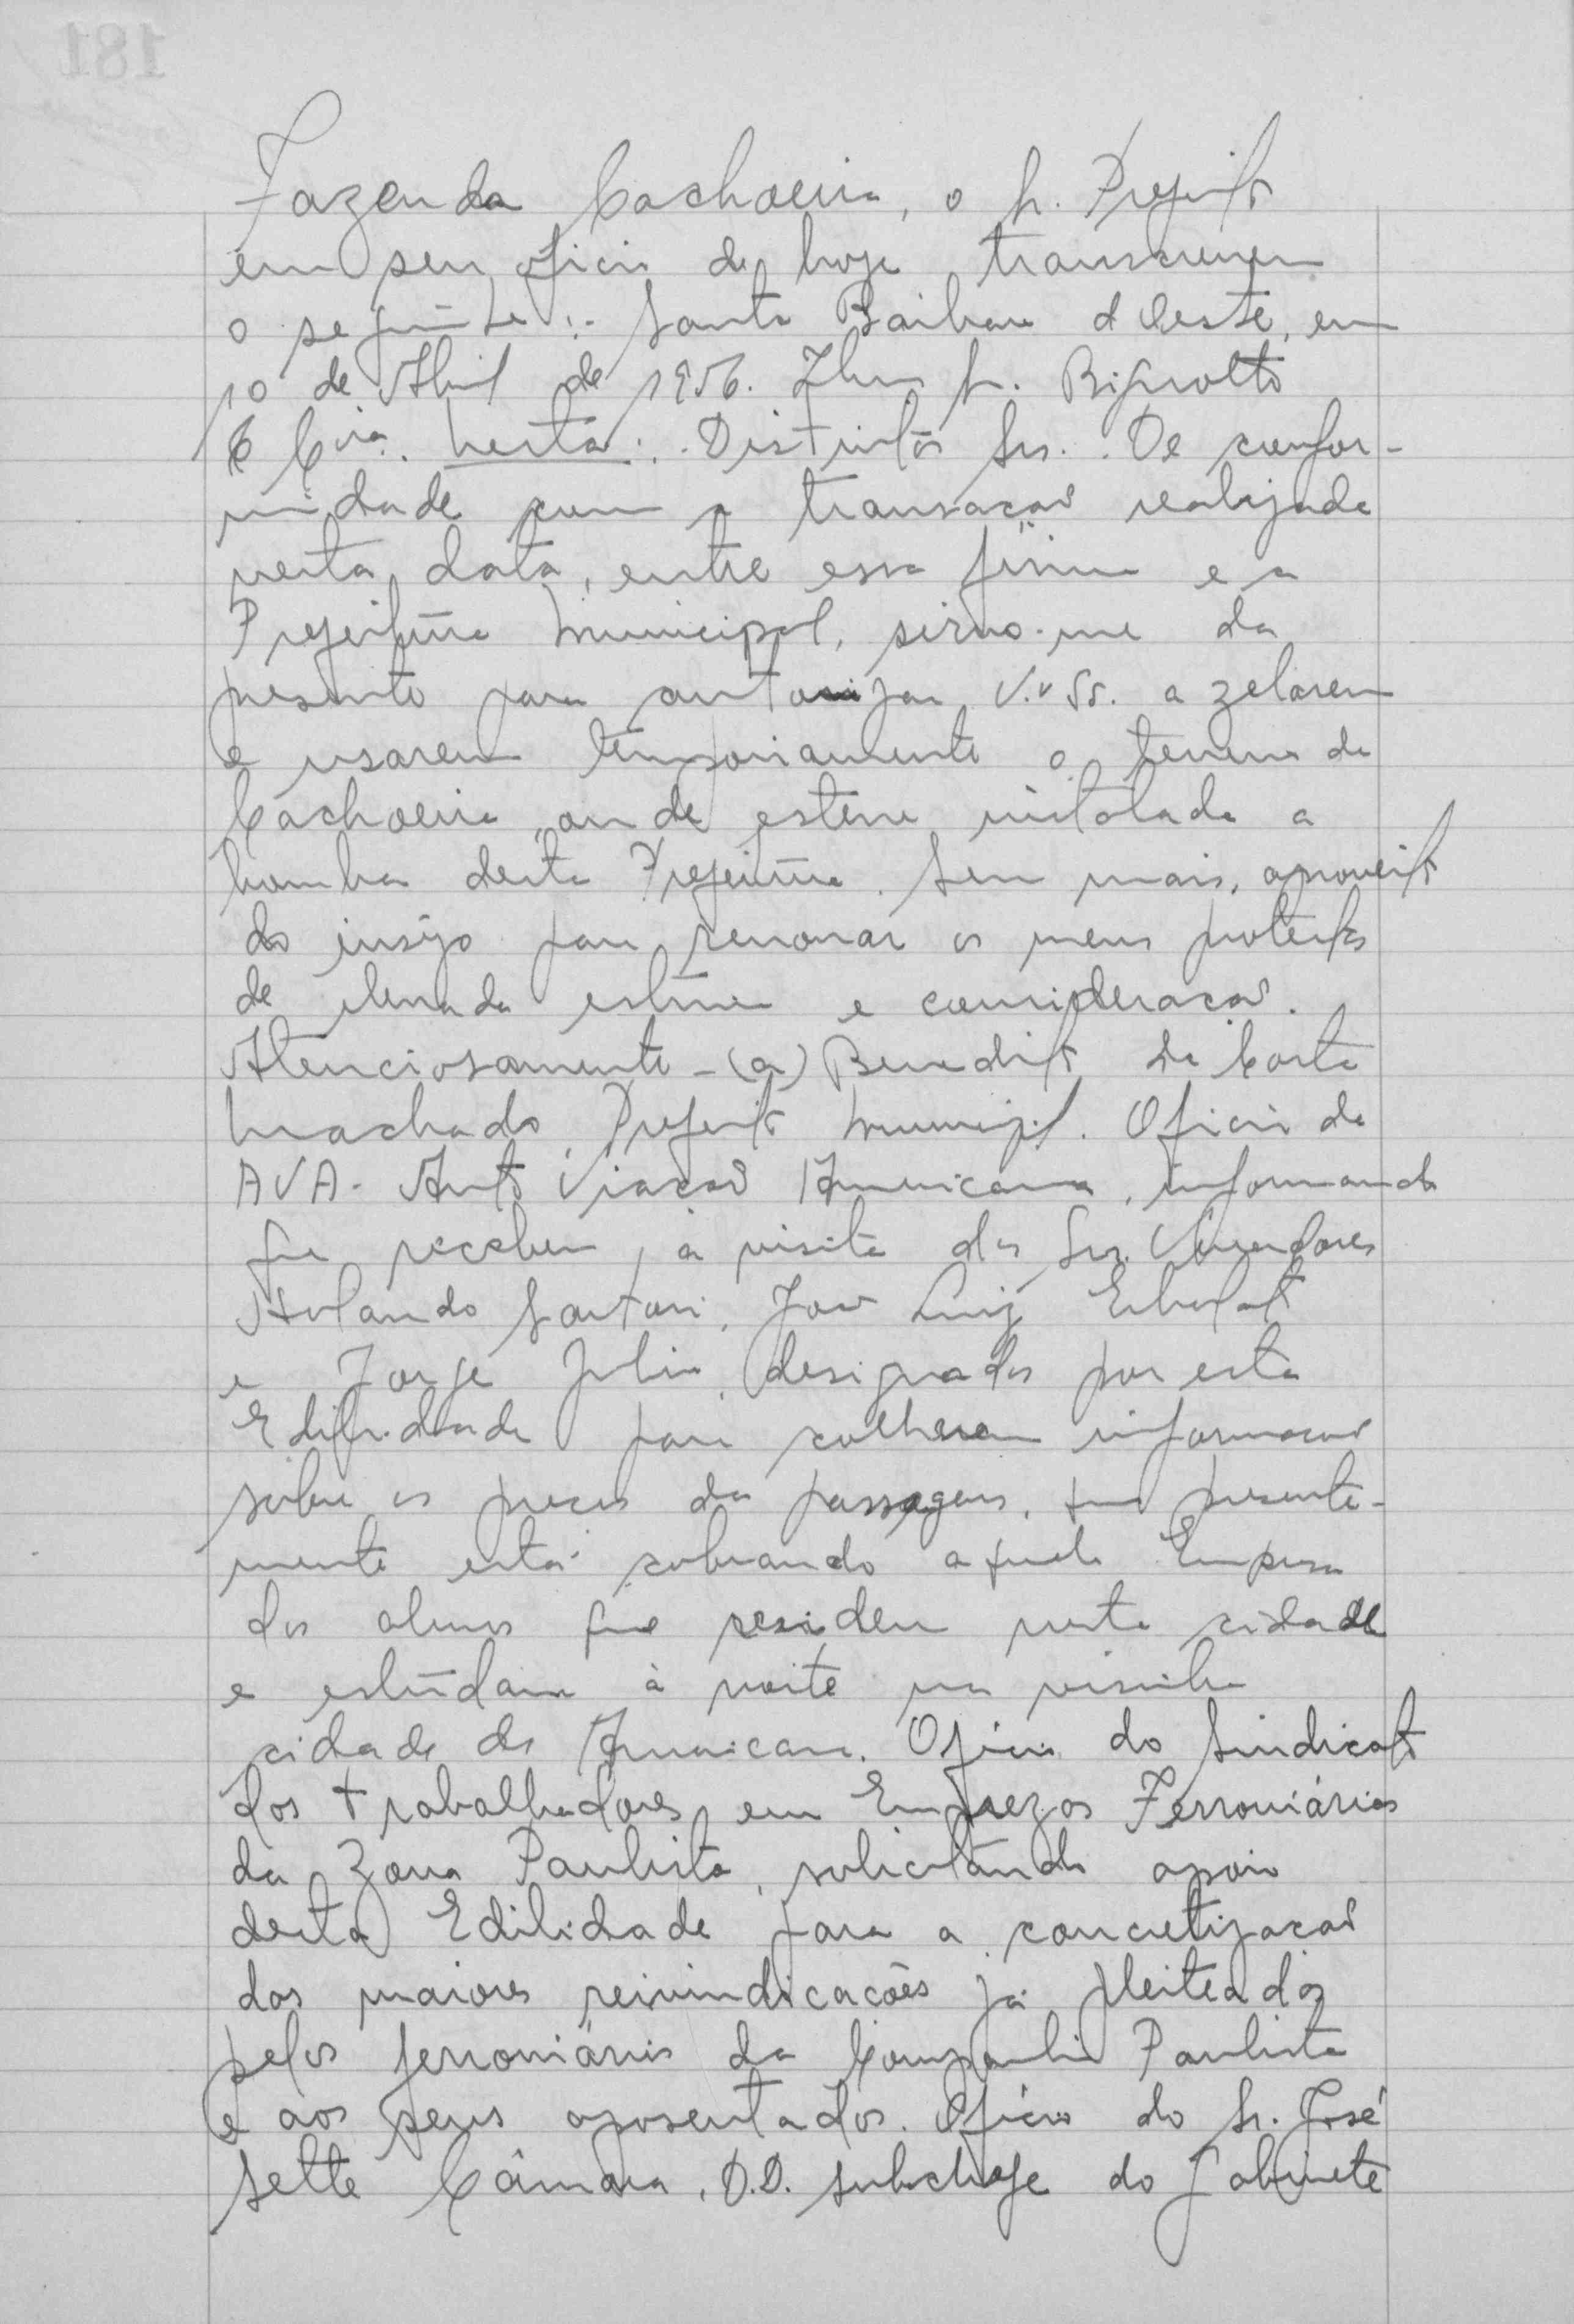 Fazenda Cachoeira, o Sr. Prefeito
em seu oficio de hoje transcreveu
o seguinte:- Santa Barbara d'Oeste, em
10 de Abril de 1956. Ilmo Sr. Bignotto
& Cia. Nesta:. Distintos Srs.. De confor-
midade com a transação realizada
nesta data, entre essa firma e a
Prefeitura Municipal, sirvo-me da
presente para autorizar V.v Ss. a zelarem
e usarem temporiamente o terreno da
Cachoeira, onde esteve instalada a
bomba desta Prefeitura. Sem mais, aproveito
do ensejo para renovar os meus protestos
de elevada estima e consideração.
Atenciosamente - (a) Benedito da Costa
Machado, Prefeito Municipal. Oficio da
AVA- Auto Viação Americana, informando
que recebeu, a visita dos Srs. Vereadores
Orlando Sartori, José Luiz
e Jorge Julio, designados por esta
Edilidade para colherem informação
sobre os preços das passagens, que presente-
mente está cobrando aquela Empresa
dos alunos que residem nesta cidade
e estudam à noite na visinha
cidade de Americana. Oficio do Sindicato
dos trabalhadores em Emprezas Ferroviárias
da Zona Paulista, solicitando apoio
desta Edilidade para a concretização
das maiores reivindicacões já pleiteadas
pelos ferroviários da Companhia Paulista
e aos seus aposentados. Oficio do Sr. José
Sette Câmara, D.D. subchefe do Gabinete
181